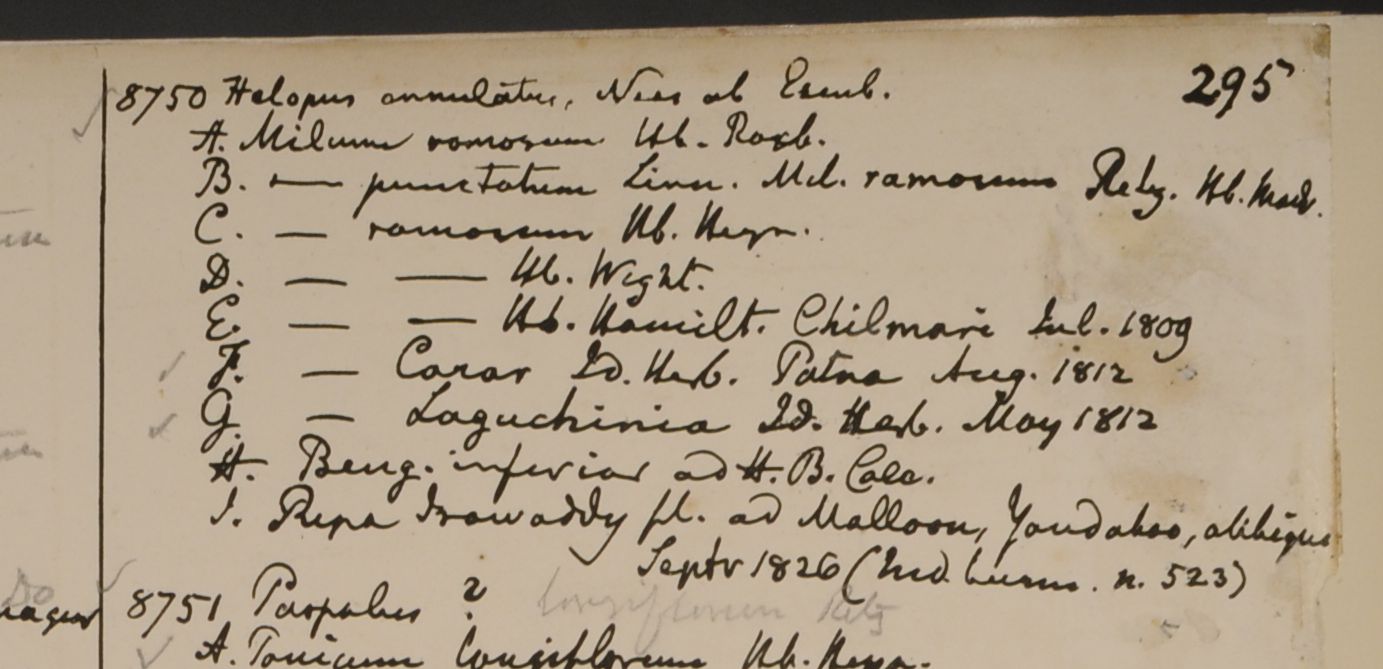 295
8750 Helopus annulatus, Nees ab Esenb.
A. Milium ramosum Hb. Roxb.
B. — punctatum Linn. Mil. ramosum Retz. Hb. Madr.
C. — ramosum Hb. Heyn.
D. — — Hb. Wight.
E. — — Hb. Hamilt. Chilmari Jul. 1809
F. — Id. Herb. Patna Aug. 1812
G. — Id. Herb. May 1812
H. Beng. inferior ad H. B. Calc.
I. Ripa Irawaddy fl. ad Malloon, Yandaboo, alibique
Septr 1826 ( n. 523)
8751 Paspalus ? longiflorum Retz
A. Panicum longiflorum Hb. Heyn.